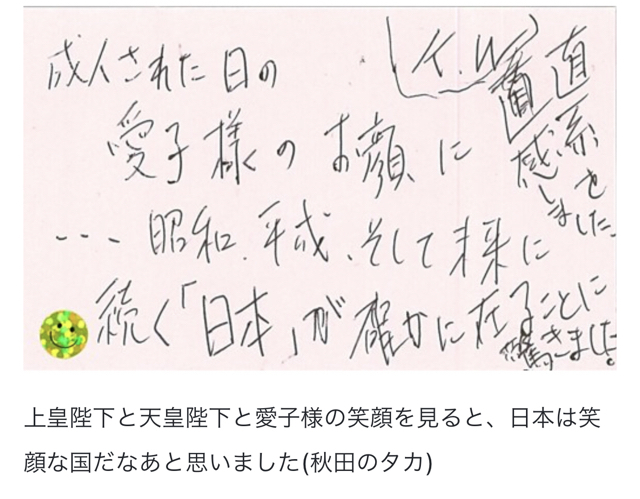 成人された日の
(イ.W)
愛子様のお顔に
直系を
感じました。
… 昭和、平成、そして未来に
続く「日本」が確かに在ることに
驚きました。
上皇陛下と天皇陛下と愛子様の笑顔を見ると、日本は笑
顔な国だなあと思いました(秋田のタカ)